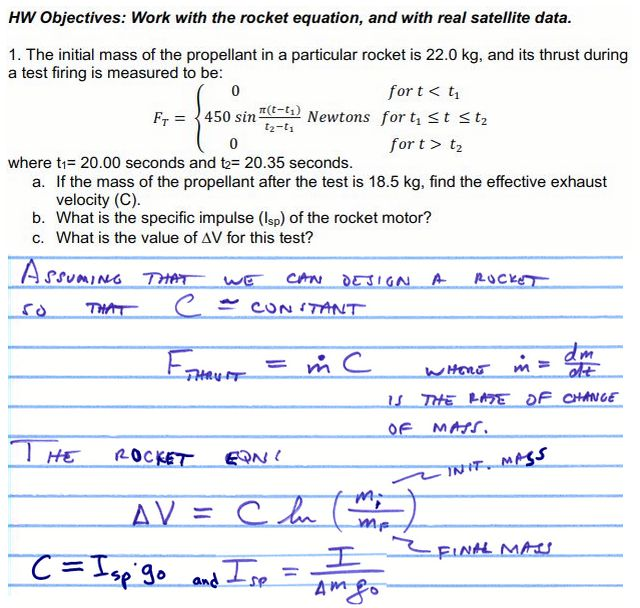 HW Objectives: Work with the rocket equation, and with real satellite data.
1. The initial mass of the propellant in a particular rocket is 22.0 kg, and its thrust during
a test firing is measured to be:
0 for t < t₁
F_T = { 450 sin π(t−t₁)/(t₂−t₁) Newtons for t₁ ≤ t ≤ t₂
0 for t > t₂
where t₁= 20.00 seconds and t₂= 20.35 seconds.
a. If the mass of the propellant after the test is 18.5 kg, find the effective exhaust
velocity (C).
b. What is the specific impulse (Isp) of the rocket motor?
c. What is the value of ΔV for this test?
ASSUMING THAT WE CAN DESIGN A ROCKET
SO THAT C ≅ CONSTANT
F_THRUST = ṁ C WHERE ṁ = dm/dt
IS THE RATE OF CHANGE
OF MASS.
THE ROCKET EQN:
INIT. MASS
ΔV = C ln (m_i/m_F)
FINAL MASS
C = I_sp·g₀ and I_SP = I/(Δm g₀)